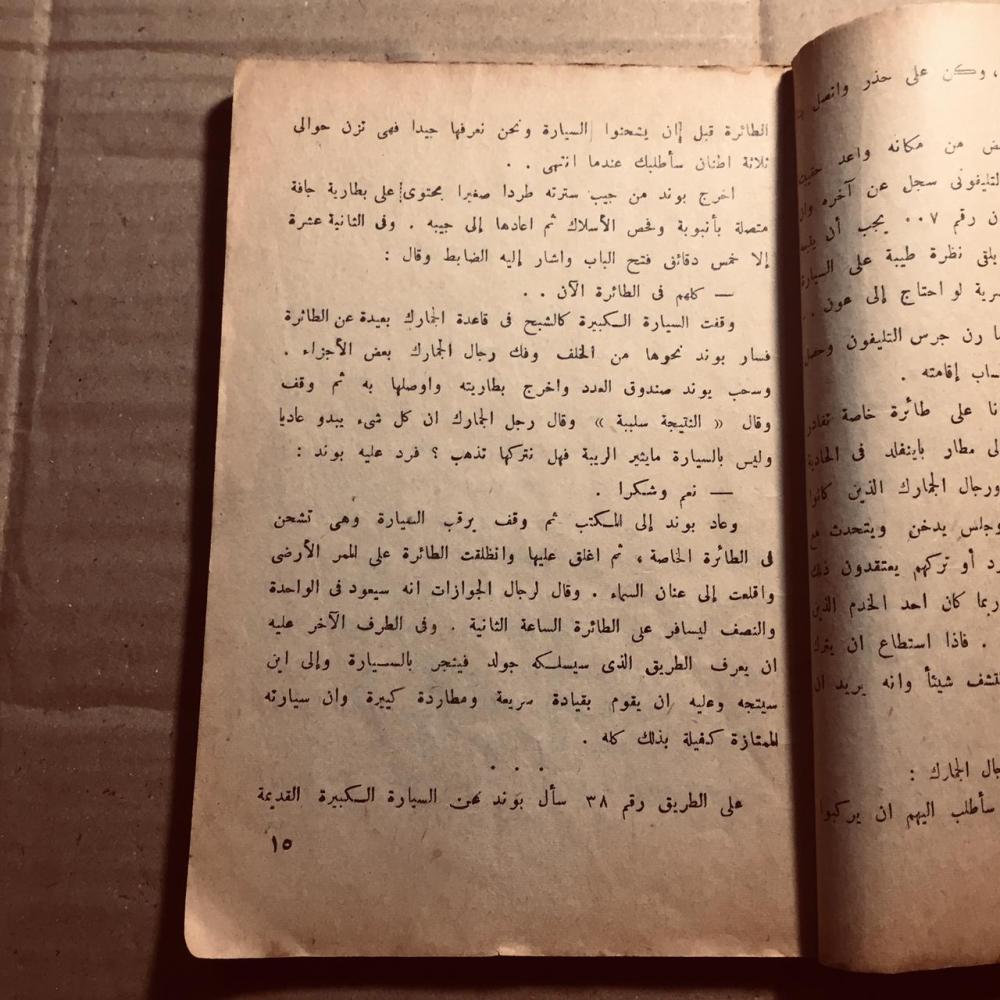 ، وكن على حذر واتصل
من مكانه واعد
التليفونى سجل عن آخره وان
رقم ٠٠٧ يجب أن
يلقى نظرة طيبة على السيارة
لو احتاج إلى عون . .
رن جرس التليفون
إقامته .
على طائرة خاصة تغادر
مطار باينفلد فى
ورجال الجمارك الذين كانوا
وجلس يدخن ويتحدث مع
أو تركهم يعتقدون ذلك
ربما كان احد الخدم الذين
. فاذا استطاع ان يترك
شيئاً وانه يريد ان
الجمارك :
سأطلب اليهم ان يركبوا
الطائرة قبل إن يشحنوا السيارة ونحن نعرفها جيدا فهى تزن حوالى
ثلاثة اطنان سأطلبك عندما انتهى . .
اخرج بوند من جيب سترته طردا صغيرا يحتوى على بطارية جافة
متصلة بأنبوبة وفحص الأسلاك ثم اعادها إلى جيبه . وفى الثانية عشرة
إلا خمس دقائق فتح الباب واشار إليه الضابط وقال :
— كلهم فى الطائرة الآن . .
وقفت السيارة الكبيرة كالشبح فى قاعدة الجمارك بعيدة عن الطائرة
فسار بوند نحوها من الخلف وفك رجال الجمارك بعض الأجزاء .
وسحب بوند صندوق العدد واخرج بطاريته واوصلها به ثم وقف
وقال « النتيجة سلبية » وقال رجل الجمارك ان كل شىء يبدو عاديا
وليس بالسيارة مايثير الريبة فهل نتركها تذهب ؟ فرد عليه بوند :
— نعم وشكرا .
وعاد بوند إلى المكتب ثم وقف يرقب السيارة وهى تشحن
فى الطائرة الخاصة ، ثم اغلق عليها وانطلقت الطائرة على الممر الأرضى
واقلعت إلى عنان السماء . وقال لرجال الجوازات انه سيعود فى الواحدة
والنصف ليسافر على الطائرة الساعة الثانية . وفى الطرف الآخر عليه
ان يعرف الطريق الذى سيسلكه جولد فينجر بالسيارة وإلى اين
سيتجه وعليه ان يقوم بقيادة سريعة ومطاردة كبيرة وان سيارته
الممتازة كفيلة بذلك كله .
. . .
على الطريق رقم ٣٨ سأل بوند عن السيارة الكبيرة القديمة
١٥